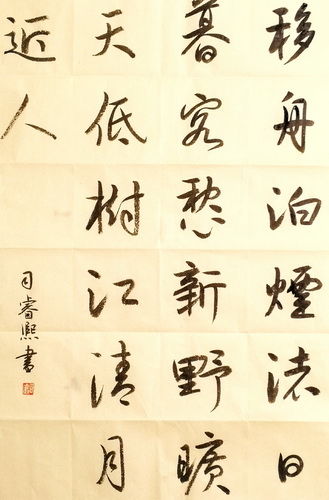 移舟泊煙渚日
暮客愁新野曠
天低樹江清月
近人
司睿熙書